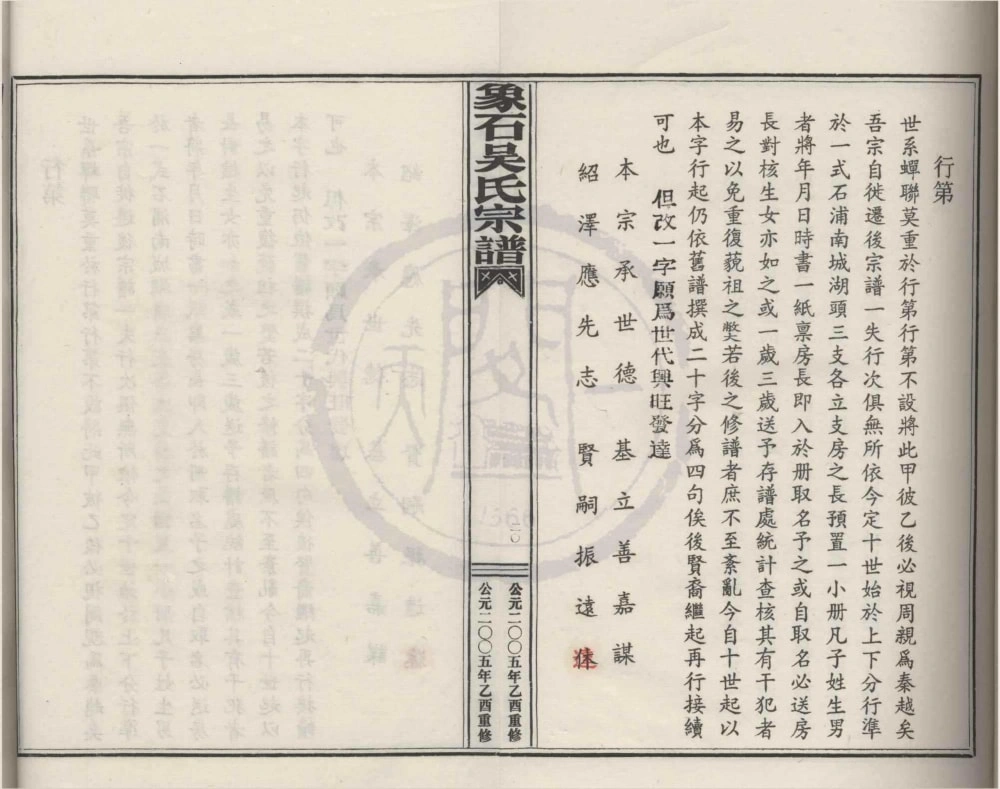 行第
世系蟬聯莫重於行第行第不設將此甲彼乙後必視周親爲秦越矣
吾宗自徙遷後宗譜一失行次俱無所依今定十世始於上下分行準
於一式石浦南城湖頭三支各立支房之長預置一小册凡子姓生男
者將年月日時書一紙稟房長即入於册取名予之或自取名必送房
長對核生女亦如之或一歲三歲送予存譜處統計查核其有干犯者
易之以免重復藐祖之獘若後之修譜者庶不至紊亂今自十世起以
本字行起仍依舊譜撰成二十字分爲四句俟後賢裔繼起再行接續
可也　但改一字願爲世代興旺發達
本宗承世德　基立善嘉謀
紹澤應先志　賢嗣振遠
象石吳氏宗譜
二〇
公元二〇〇五年乙酉重修
公元二〇〇五年乙酉重修
1566